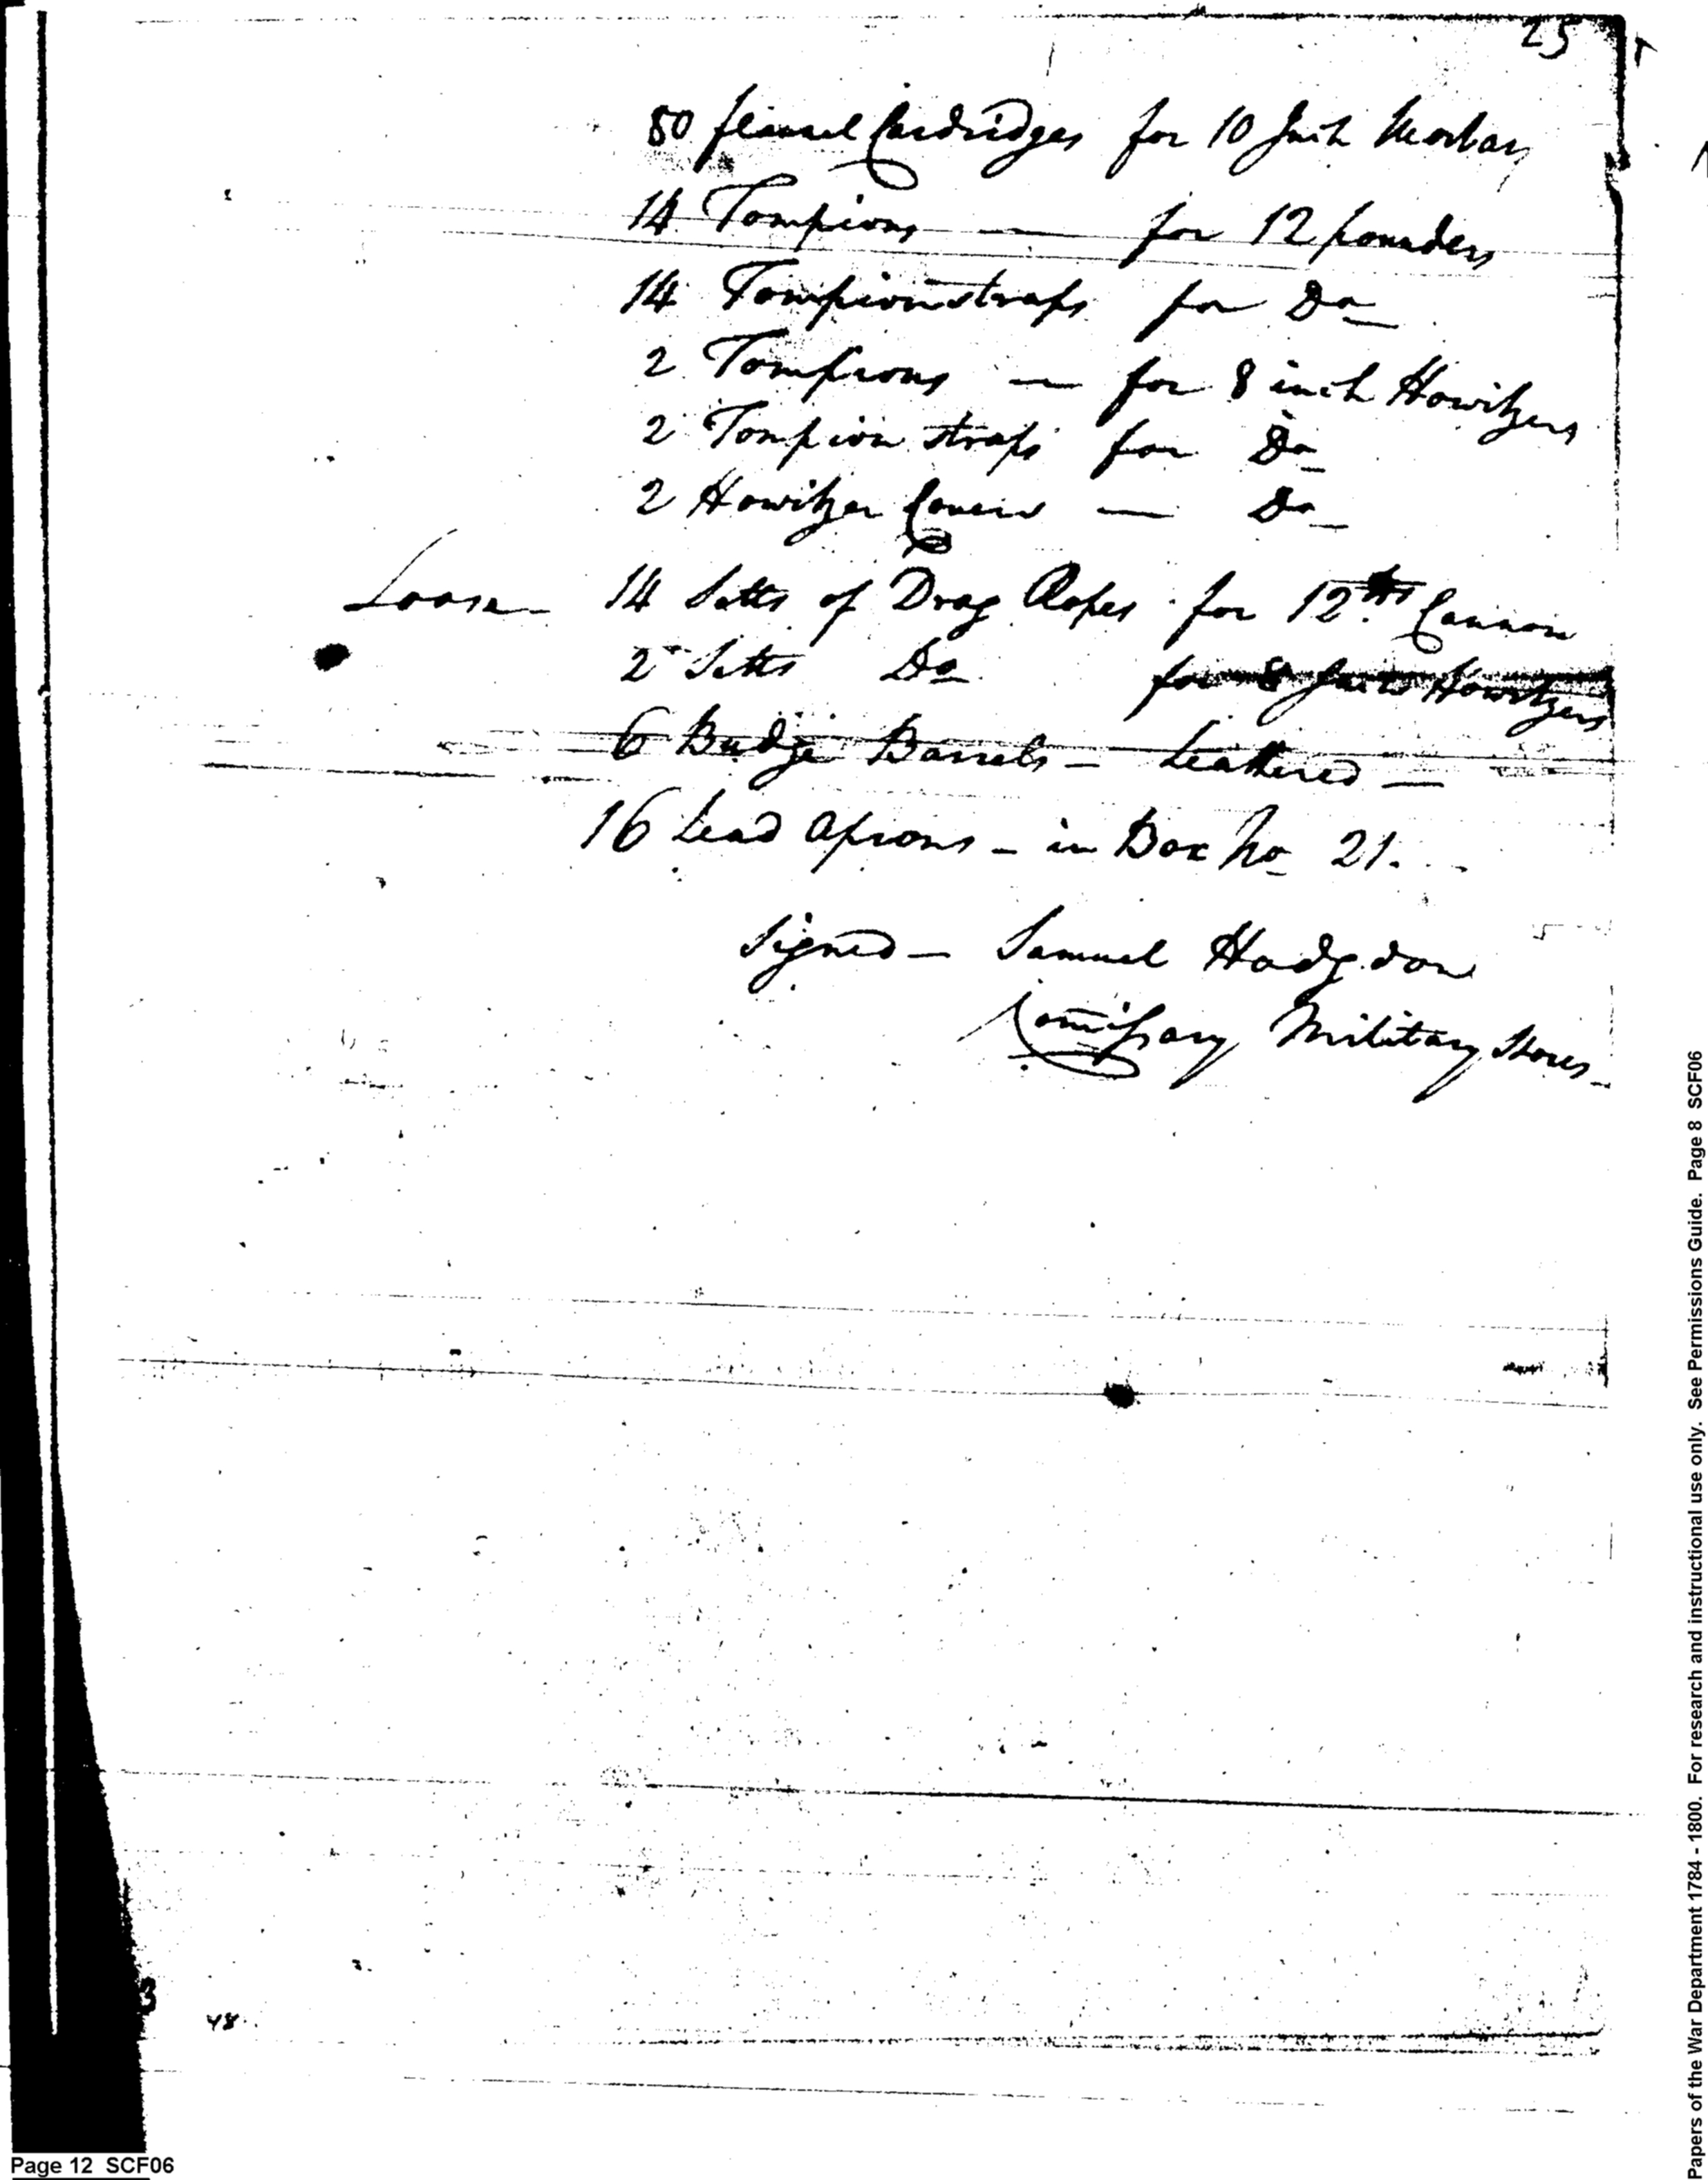 25
50 flannel Cardridges for 10 Inch Mortars
14 Tompions — for 12 pounders
14 Tompion straps for Do
2 Tompions — for 8 inch Howitzers
2 Tompion straps for Do
2 Howitzer Covers — Do
Loose — 14 Setts of Drag Ropes for 12 prs Cannon
2 Setts Do for 8 Inch Howitzers
6 Budge Barrels — Leathered —
16 Lead Aprons — in Box No 21.
Signed — Samuel Hodgdon
Comissary Military Stores —
48
Page 12 SCF06
Papers of the War Department 1784 - 1800. For research and instructional use only. See Permissions Guide. Page 8 SCF06